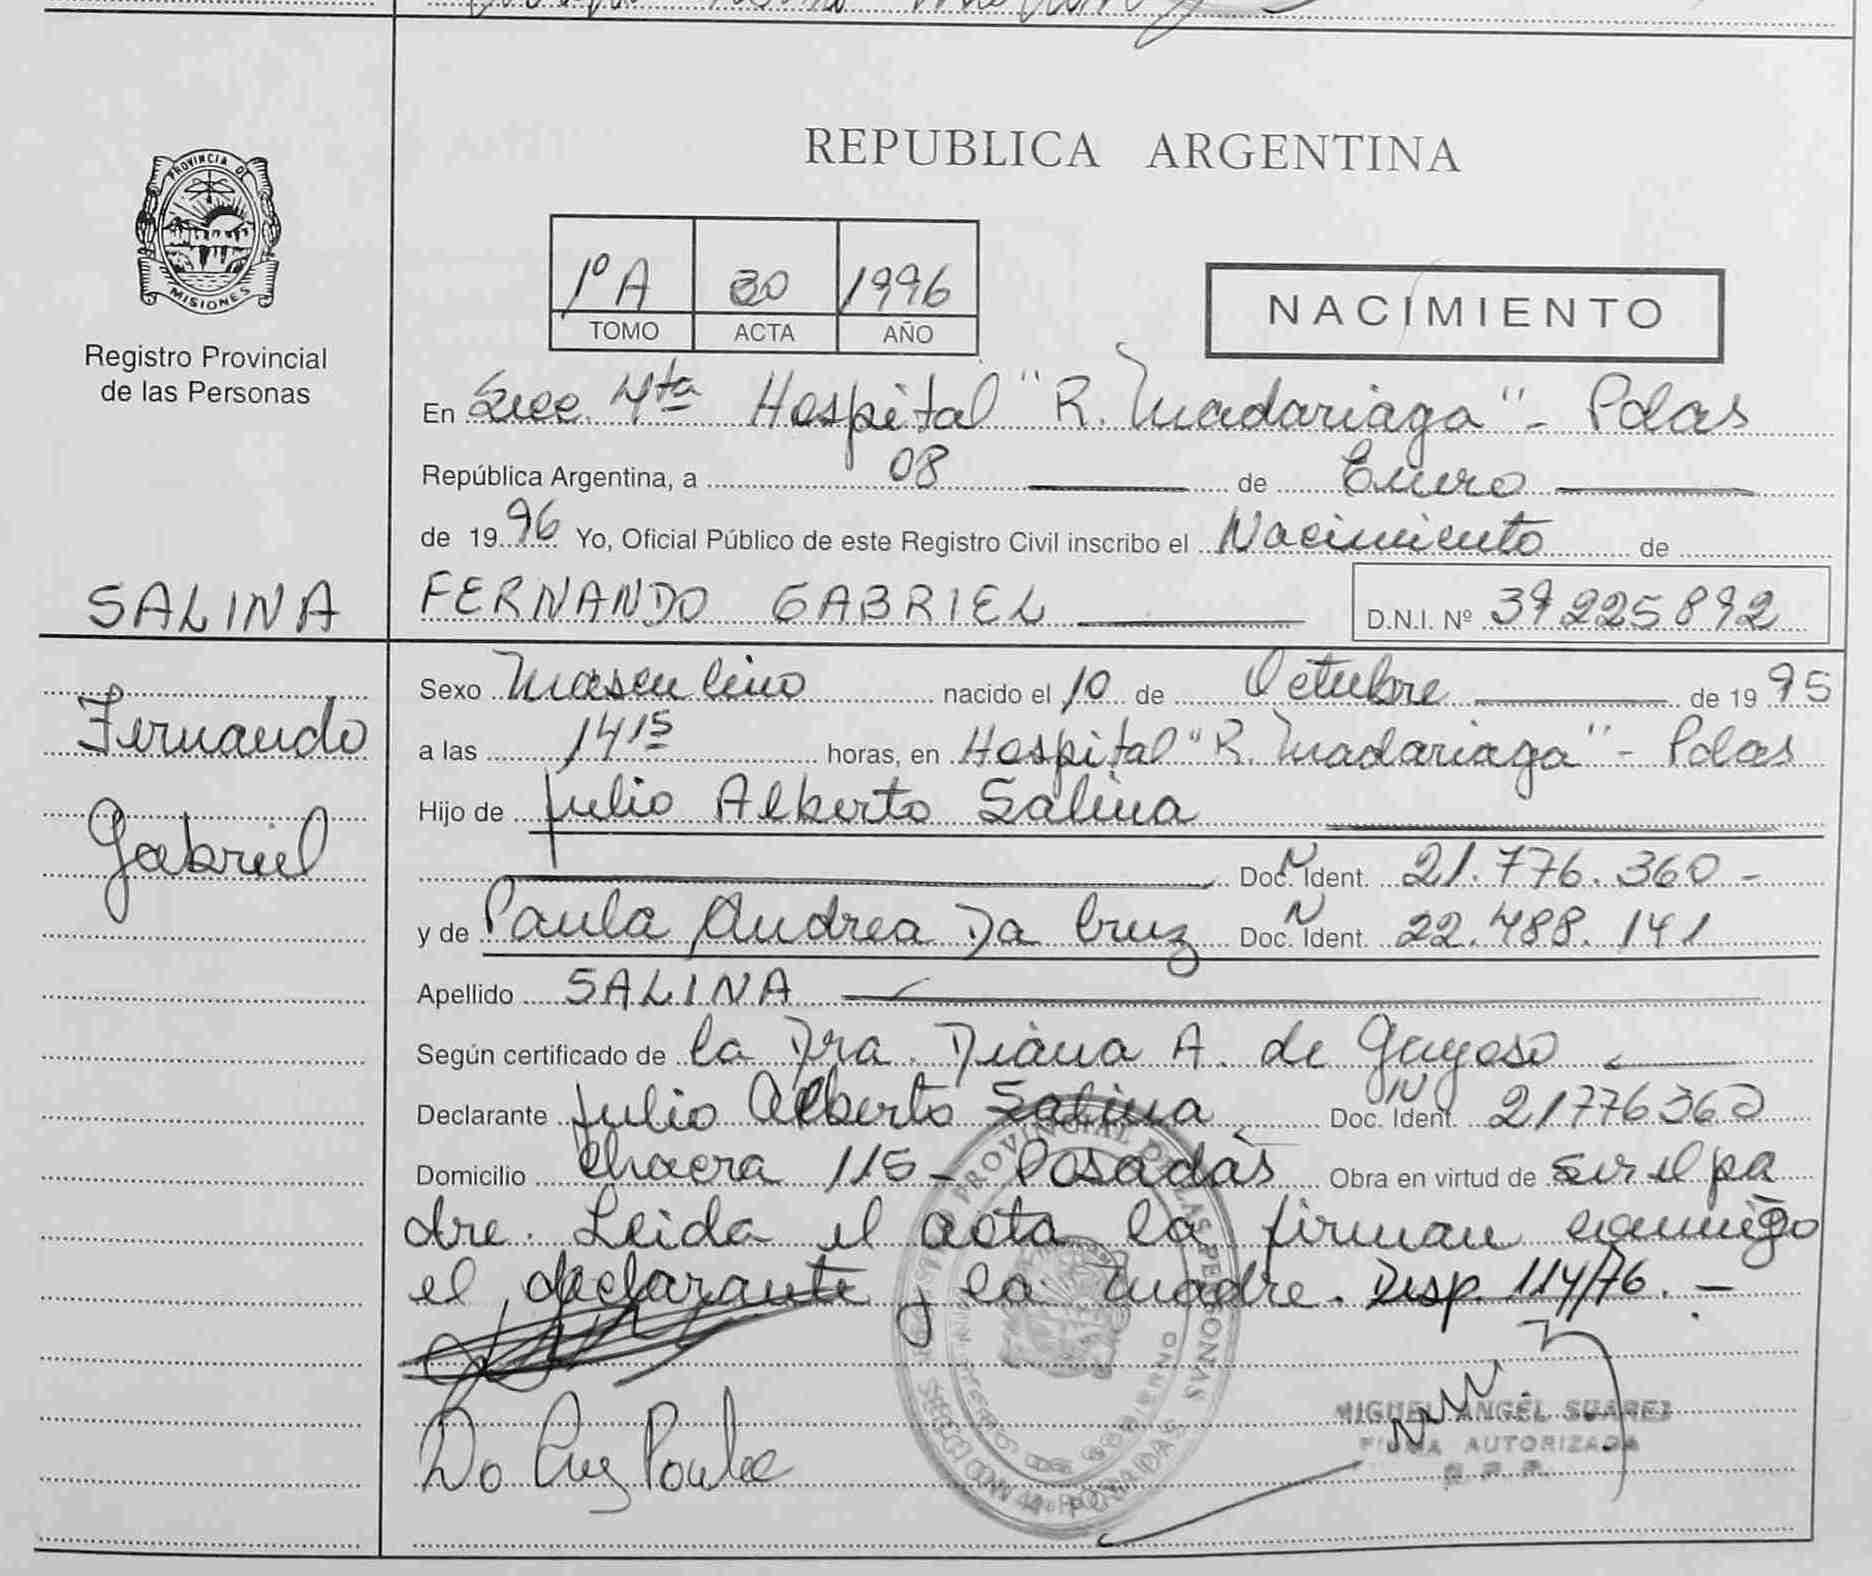 PROVINCIA DE
MISIONES
Registro Provincial
de las Personas
SALINA
Fernando
Gabriel
REPUBLICA ARGENTINA
1º A 30 1996
TOMO ACTA AÑO
NACIMIENTO
En Secc. 4ta Hospital "R. Madariaga" - Pdas
República Argentina, a 08 de Enero
de 1996 Yo, Oficial Público de este Registro Civil inscribo el Nacimiento de
FERNANDO GABRIEL D.N.I. Nº 39225892
Sexo Masculino nacido el 10 de Octubre de 1995
a las 14 15 horas, en Hospital "R. Madariaga" - Pdas
Hijo de Julio Alberto Salina
Doc. N Ident. 21.776.360 -
y de Paula Andrea Da Cruz Doc. N Ident. 22.488.141
Apellido SALINA
Según certificado de la Dra. Diana A. de Gayoso
Declarante Julio Alberto Salina Doc. N Ident. 21776360
Domicilio Chacra 115 - Posadas Obra en virtud de ser el pa
dre. Leida el acta la firman conmigo
el declarante y la madre. Disp. 114/76. -
Da Cruz Paula
MIGUEL ANGEL SUAREZ
FIRMA AUTORIZADA
PROVINCIAL DE LAS PERSONAS